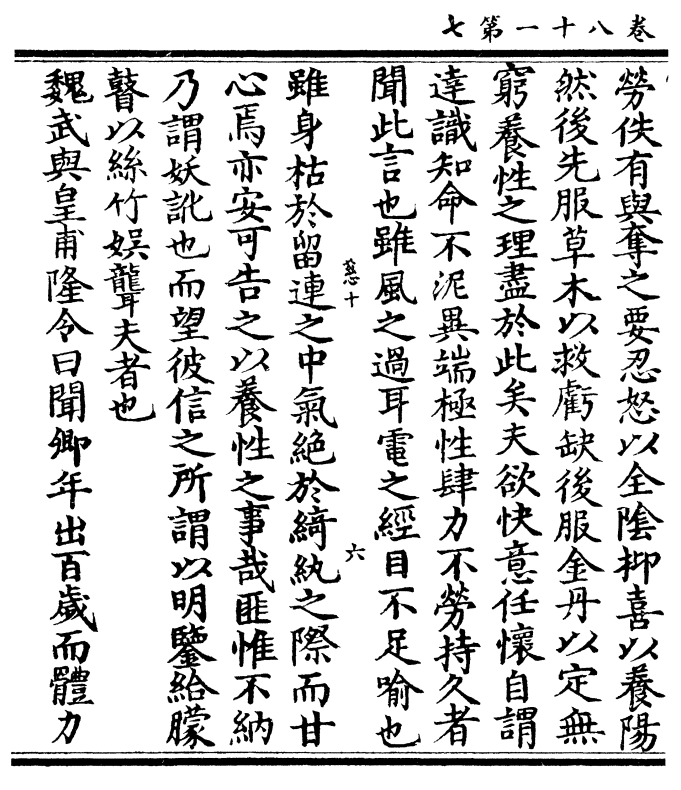 卷八十一第七
勞佚有與奪之要忍怒以全陰抑喜以養陽
然後先服草木以救虧缺後服金丹以定無
窮養性之理盡於此矣夫欲快意任懷自謂
達識知命不泥異端極性肆力不勞持久者
聞此言也雖風之過耳電之經目不足喻也
慈十
六
雖身枯於留連之中氣絕於綺紈之際而甘
心焉亦安可告之以養性之事哉匪惟不納
乃謂妖訛也而望彼信之所謂以明鑒給朦
瞽以絲竹娛聾夫者也
魏武與皇甫隆令曰聞卿年出百歲而體力